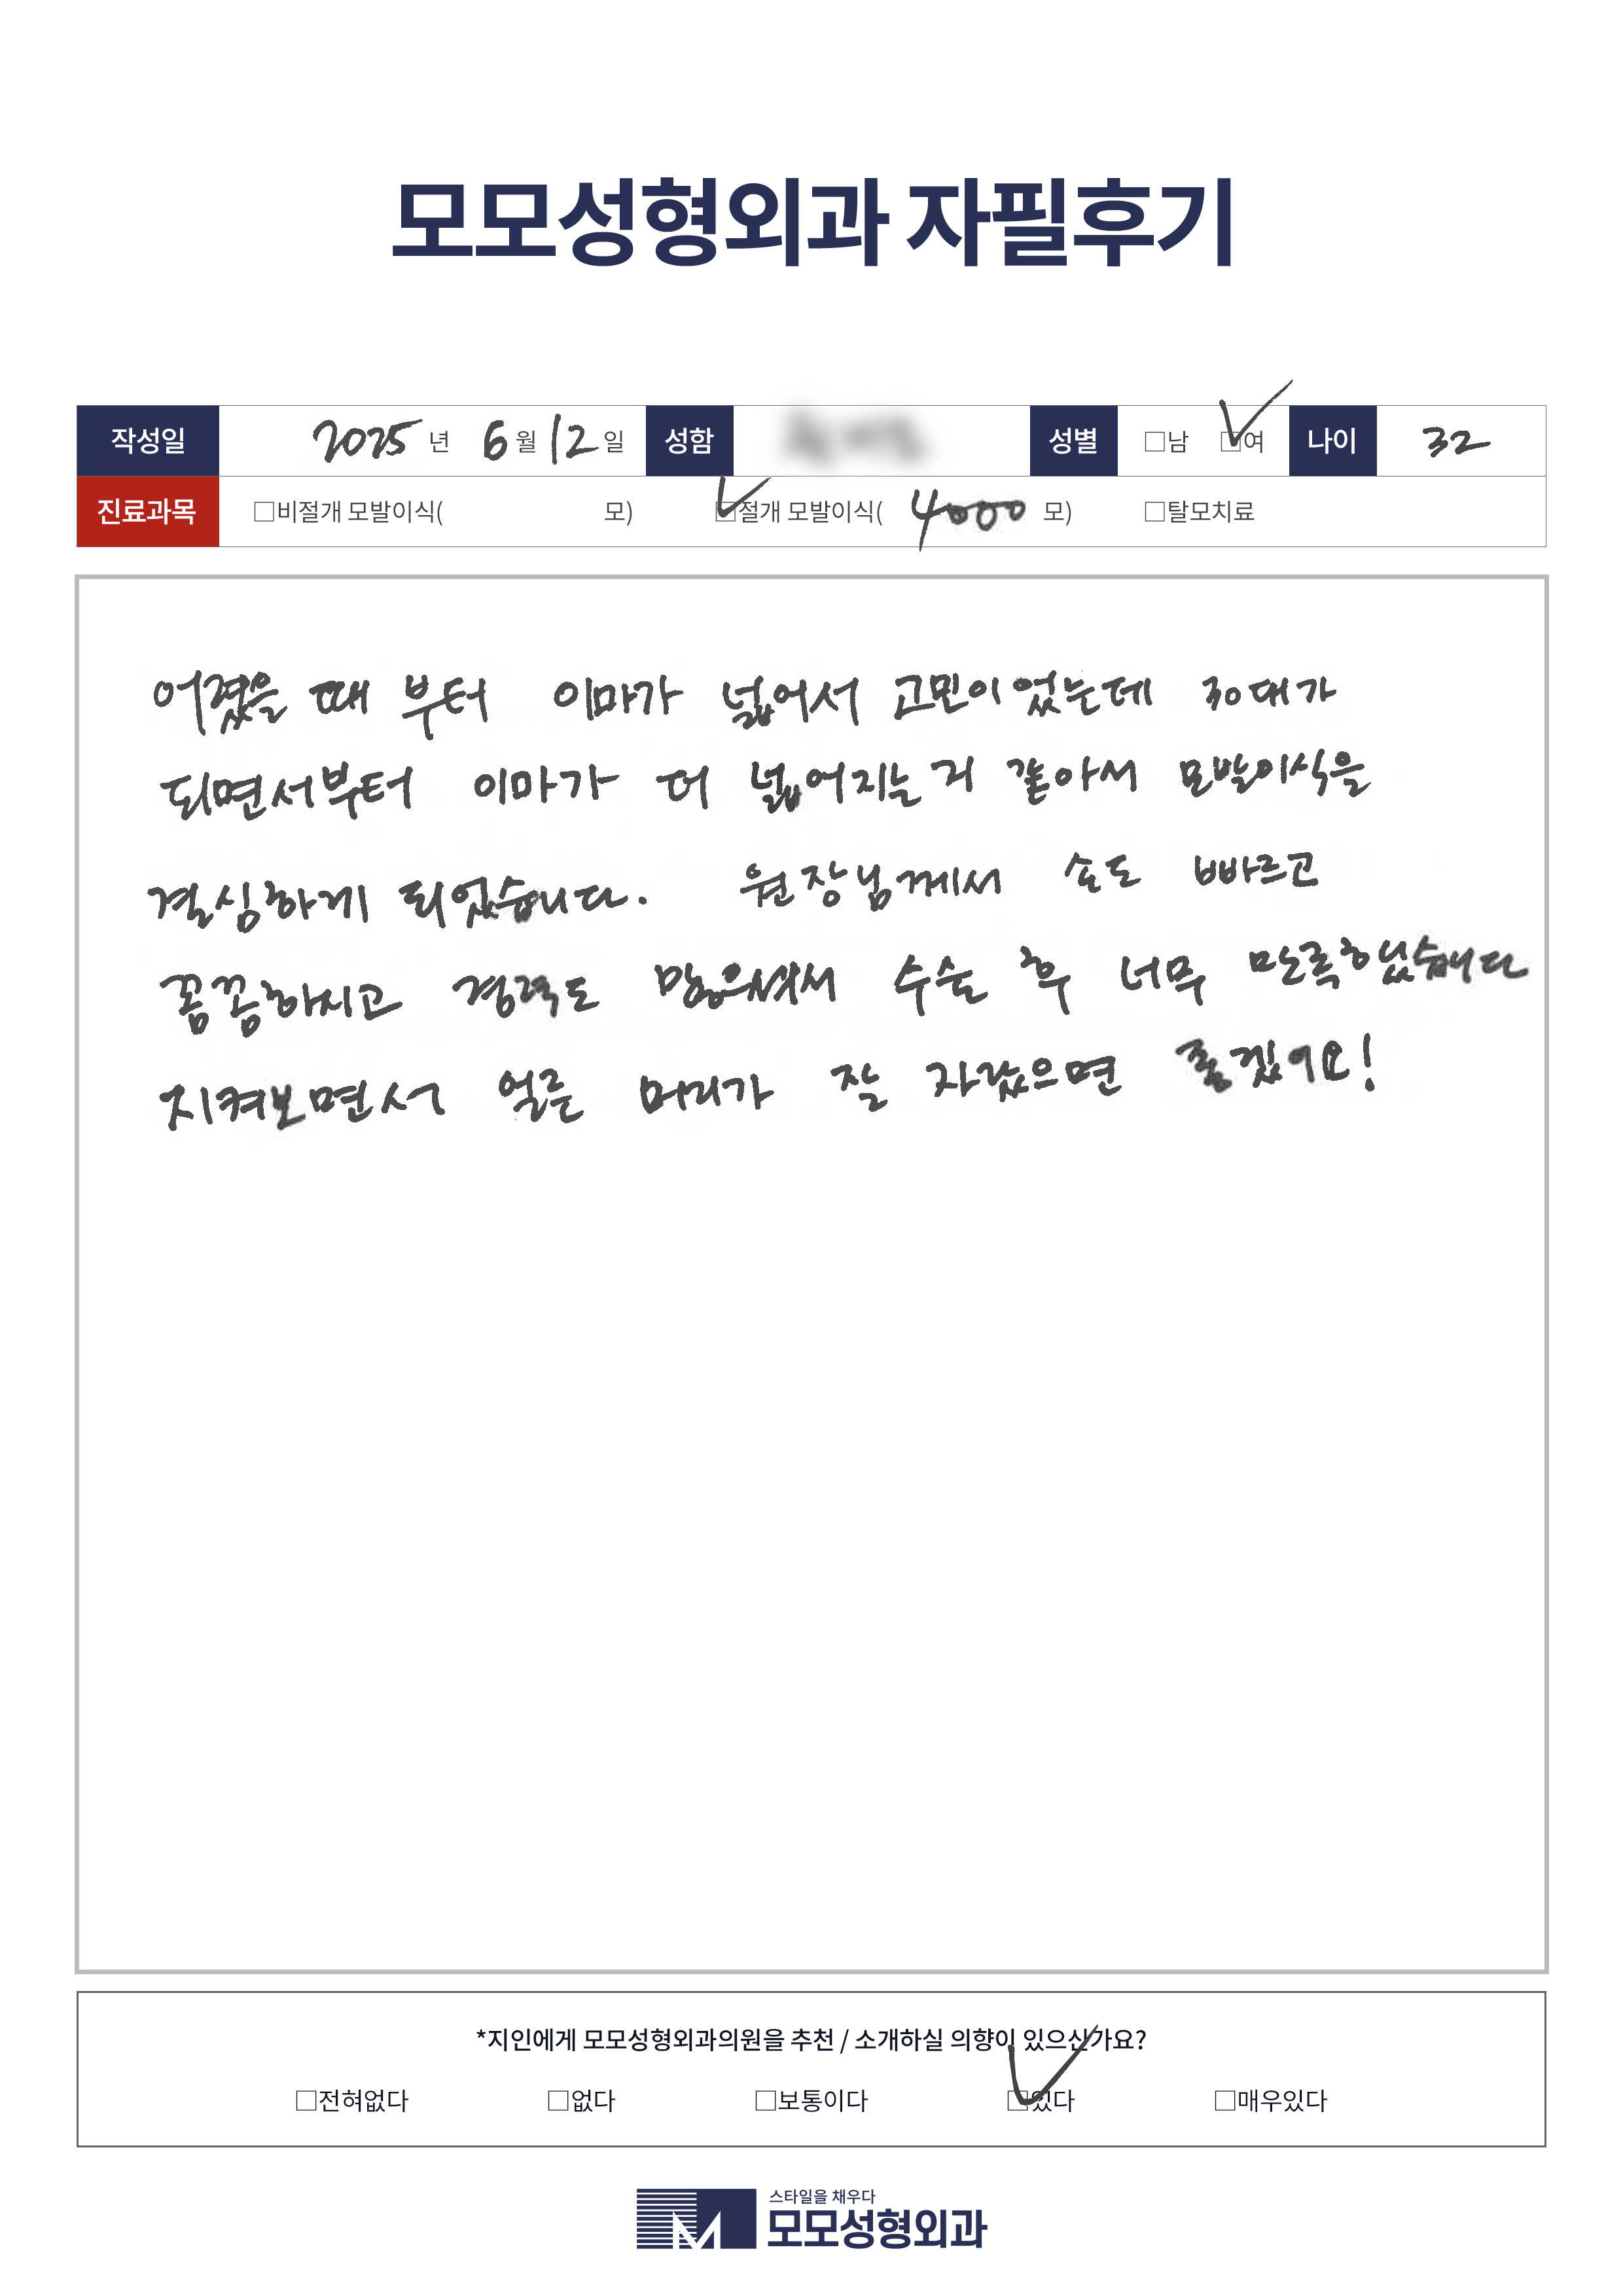 모모성형외과 자필후기
작성일 2025 년 6 월 12 일 성함 성별 □남 □여 나이 32
진료과목 □비절개 모발이식( 모) □절개 모발이식( 4000 모) □탈모치료
어렸을 때 부터 이마가 넓어서 고민이었는데 30대가
되면서부터 이마가 더 넓어지는 거 같아서 모발이식을
결심하게 되었습니다. 원장님께서 손도 빠르고
꼼꼼하시고 경력도 많으셔서 수술 후 너무 만족했습니다
지켜보면서 얼른 머리가 잘 자랐으면 좋겠어요!
*지인에게 모모성형외과의원을 추천 / 소개하실 의향이 있으신가요?
□전혀없다 □없다 □보통이다 □있다 □매우있다
스타일을 채우다
모모성형외과